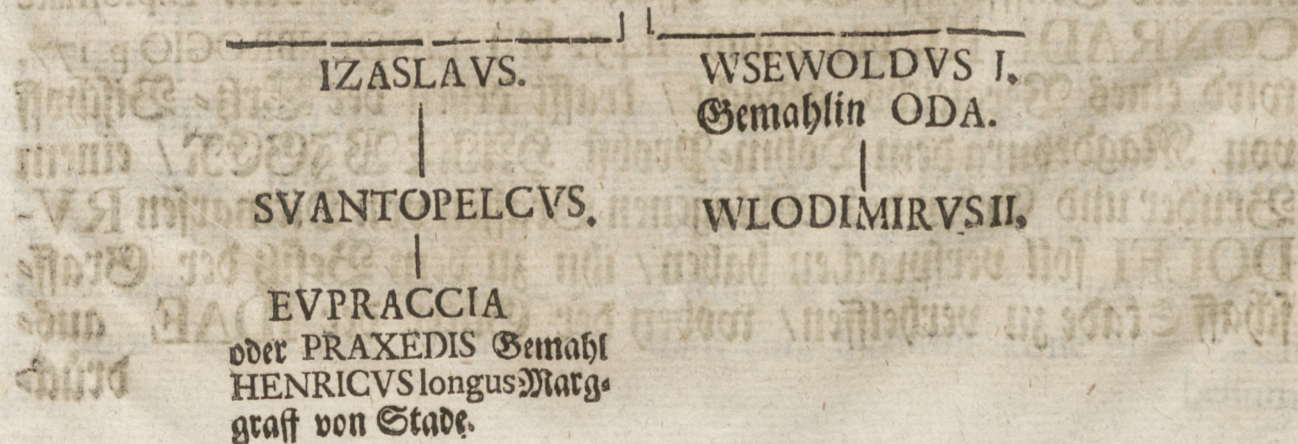 IZASLAVS.
SVANTOPELCVS.
EVPRACCIA
oder PRAXEDIS Gemahl
HENRICVS longus Marg-
graff von Stade.
WSEWOLDVS I.
Gemahlin ODA.
WLODIMIRVS II.